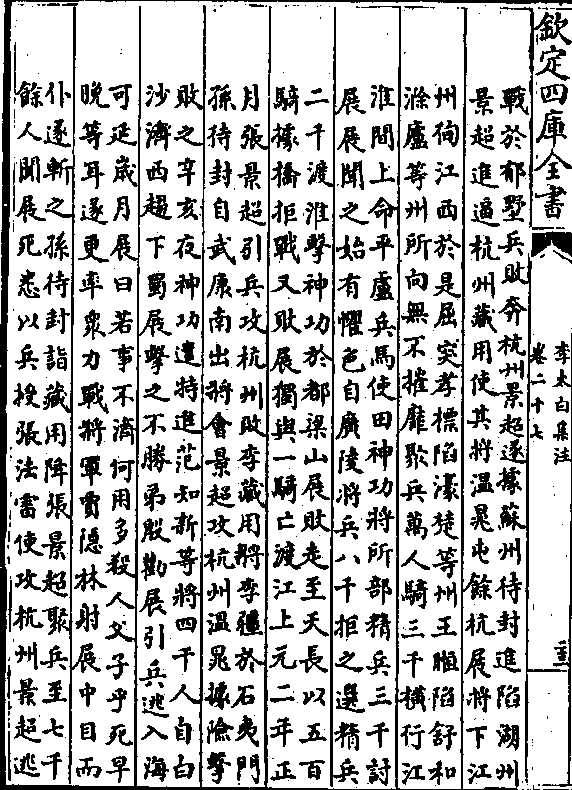 欽定四庫全書
李太白集注
卷二十七
戰於郁墅兵敗奔杭州景超遂據蘇州待封進陷湖州
景超進逼杭州藏用使其將溫晁屯餘杭展將下江
州徇江西於是屈突孝標陷濠楚等州王暅陷舒和
滁廬等州所向無不摧靡聚兵萬人騎三千橫行江
淮間上命平盧兵馬使田神功將所部精兵三千討
展展聞之始有懼色自廣陵將兵八千拒之選精兵
二千渡淮擊神功於都梁山展敗走至天長以五百
騎據橋拒戰又敗展獨與一騎亡渡江上元二年正
月張景超引兵攻杭州敗李藏用將李彊於石夷門
孫待封自武康南出將會景超攻杭州溫晁據險擊
敗之辛亥夜神功遣特進范知新等將四千人自白
沙濟西趨下蜀展擊之不勝弟殷勸展引兵逃入海
可延歲月展曰若事不濟何用多殺人父子乎死早
晚等耳遂更率衆力戰將軍賈隱林射展中目而
仆遂斬之孫待封詣藏用降張景超聚兵至七千
餘人聞展死悉以兵授張法雷使攻杭州景超逃